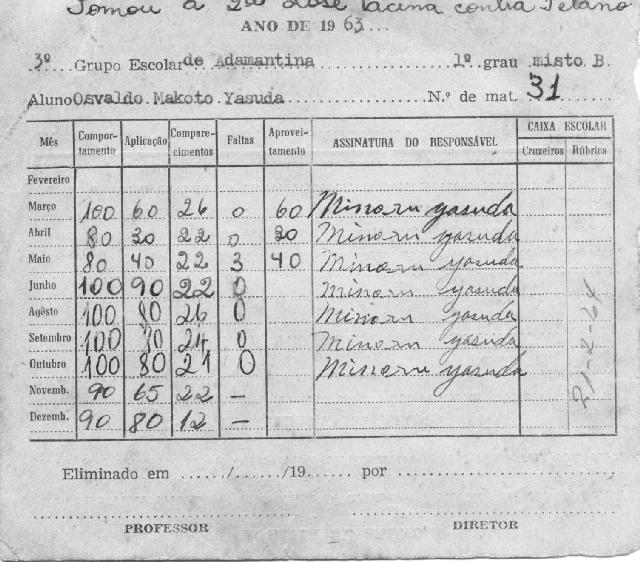 Tomou a 2a dose vacina contra Tetano
ANO DE 1963
3º Grupo Escolar de Adamantina 1º grau misto B.
Aluno Osvaldo Makoto Yasuda N.º de mat. 31
Mês Compor-tamento Aplicação Compare-cimentos Faltas Aprovei-tamento ASSINATURA DO RESPONSÁVEL CAIXA ESCOLAR
Cruzeiros Rúbrica
Fevereiro
Março 100 60 26 0 60 Minoru yasuda
Abril 80 30 22 0 30 Minoru yasuda
Maio 80 40 22 3 40 Minoru yasuda
Junho 100 90 22 0 Minoru yasuda
Agôsto 100 80 26 0 Minoru yasuda
Setembro 100 24 0 Minoru yasuda
Outubro 100 80 21 0 Minoru yasuda
Novemb. 90 65 22 —
Dezemb. 90 80 12 —
21-2-64
Eliminado em ....../....../19...... por
PROFESSOR DIRETOR